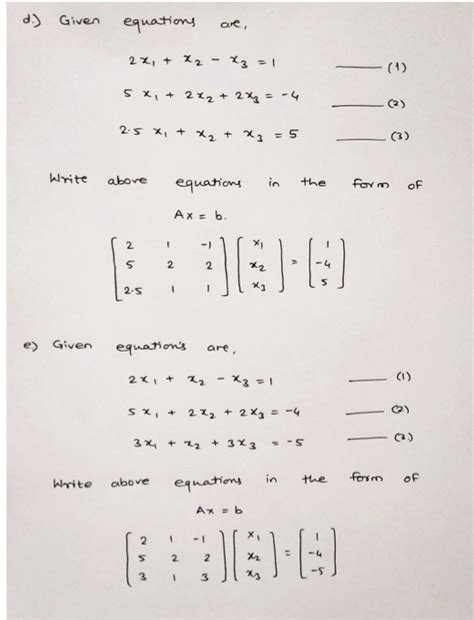 d.) Given equations are,
2x₁ + x₂ - x₃ = 1 —— (1)
5 x₁ + 2x₂ + 2x₃ = -4 —— (2)
2.5 x₁ + x₂ + x₃ = 5 —— (3)
Write above equations in the form of
Ax = b.
[2 1 -1] [x₁] [1]
[5 2 2] [x₂] = [-4]
[2.5 1 1] [x₃] [5]
e) Given equation's are,
2x₁ + x₂ - x₃ = 1 —— (1)
5x₁ + 2x₂ + 2x₃ = -4 —— (2)
3x₁ + x₂ + 3x₃ = -5 —— (3)
Write above equations in the form of
Ax = b
[2 1 -1] [x₁] [1]
[5 2 2] [x₂] = [-4]
[3 1 3] [x₃] [-5]